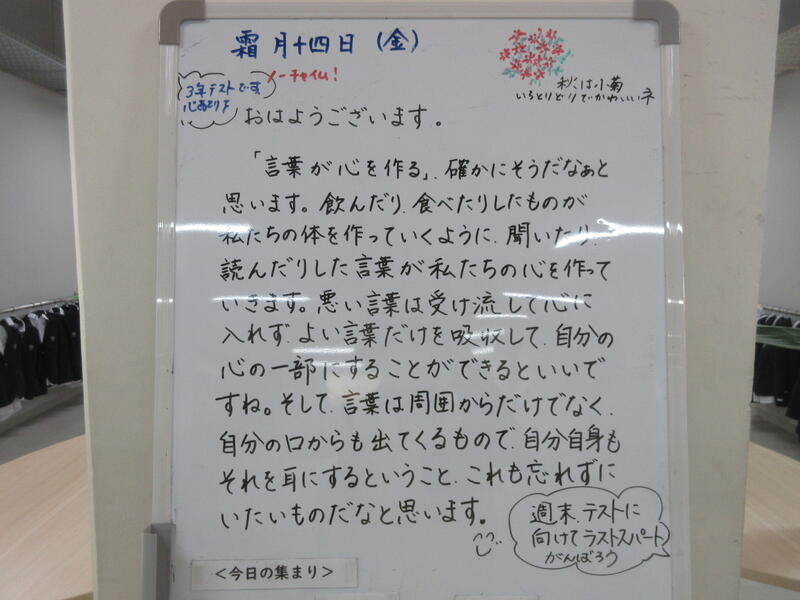 霜月十四日(金)
ノーチャイム!
3年テストです
心配り下
さい
秋は小菊
いろとりどりでかわいいネ
おはようございます。
「言葉が心を作る」、確かにそうだなぁと
思います。飲んだり、食べたりしたものが
私たちの体を作っていくように、聞いたり、
読んだりした言葉が私たちの心を作って
いきます。悪い言葉は受け流して心に
入れず、よい言葉だけを吸収して、自分の
心の一部にすることができるといいで
すね。そして、言葉は周囲からだけでなく、
自分の口からも出てくるもので、自分自身も
それを耳にするということ、これも忘れずに
いたいものだなと思います。
週末、テストに
向けてラストスパート
がんばろう
<今日の集まり>